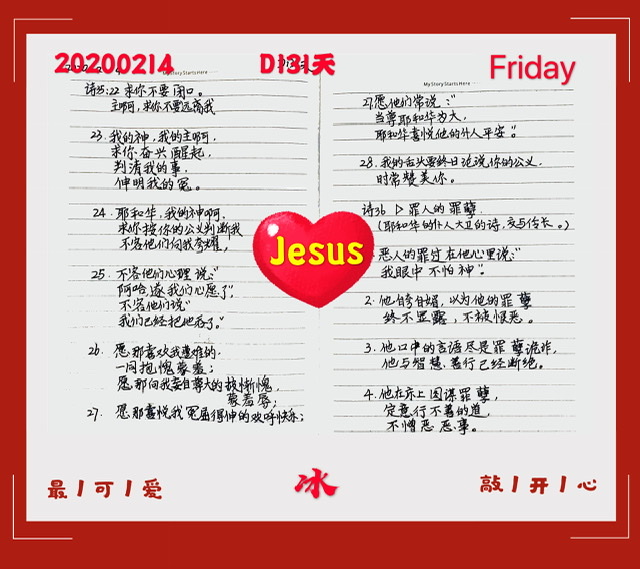 20200214
D131天
Friday
My Story Starts Here
诗35:22 求你不要闭口。
主啊,求你不要远离我
23. 我的神,我的主啊,
求你奋兴醒起,
判清我的事,
伸明我的冤。
24. 耶和华,我的神啊,
求你按你的公义判断我
不容他们向我夸耀,
25. 不容他们心理说:“
阿哈,遂我们心愿了”,
不容他们说“
我们已经把他吞了。”
26. 愿那喜欢我遭难的,
一同抱愧蒙羞;
愿那向我妄自尊大的披惭愧,
蒙羞辱;
27. 愿那喜悦我冤屈得伸的欢呼快乐;
My Story Starts Here
27. 愿他们常说:“
当尊耶和华为大,
耶和华喜悦他的仆人平安”。
28. 我的舌头要终日论说你的公义,
时常赞美你。
诗36 ▷ 罪人的罪孽
(耶和华的仆人大卫的诗,交与伶长。)
恶人的罪过在他心里说:“
我眼中不怕神”。
2. 他自夸自媚,以为他的罪孽
终不显露,不被恨恶。
3. 他口中的言语尽是罪孽诡诈,
他与智慧善行已经断绝。
4. 他在床上图谋罪孽,
定意行不善的道,
不憎恶恶事。
Jesus
最丨可丨爱
冰
敲丨开丨心